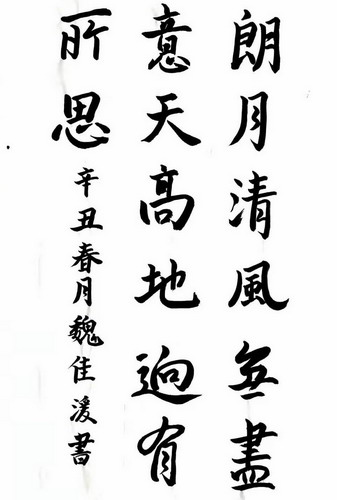 朗月清風無盡
意天高地迥有
所思
辛丑春月魏佳湲書